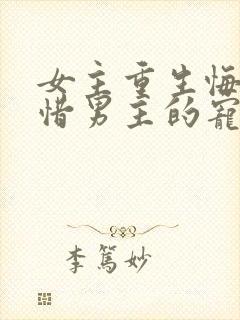 女主重生悔
惜男主的寵
李篤妙